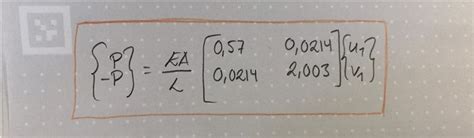 {P -P} = EA/L [0,57 0,0214 0,0214 2,003] {u1 v1}